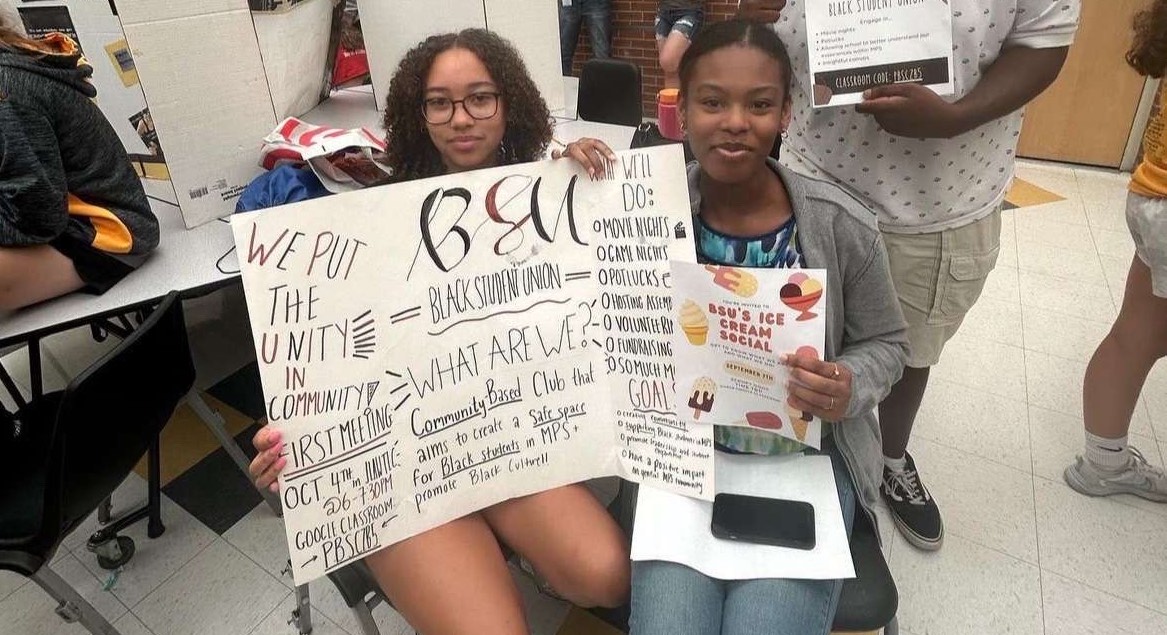 WE PUT
THE
UNITY
IN
COMMUNITY
FIRST MEETING
OCT 4TH in
@6-7:30PM
GOOGLE CLASSROOM:
PBSCZB5
BSU
BLACK STUDENT UNION
WHAT ARE WE?
Community Based Club that
aims to create a Safe space
for Black students in MPS +
promote Black Culture!!
WE'LL
DO:
MOVIE NIGHTS
GAME NIGHTS
POTLUCKS
HOSTING
VOLUNTEER
FUNDRAISING
SO MUCH
GOALS
creating community
supporting Black students in MPS
promote leadership and student
Have a positive impact
on general MPS community
YOU'RE INVITED TO
BSU'S ICE
CREAM
SOCIAL
GET TO KNOW WHAT WE
AND WHAT WE DO
SEPTEMBER 7TH
BLACK STUDENT UNION
Engage in...
Movie nights
Potlucks
Allowing school to better understand our
experiences within MPS
Insightful events
CLASSROOM CODE: PBSCZB5